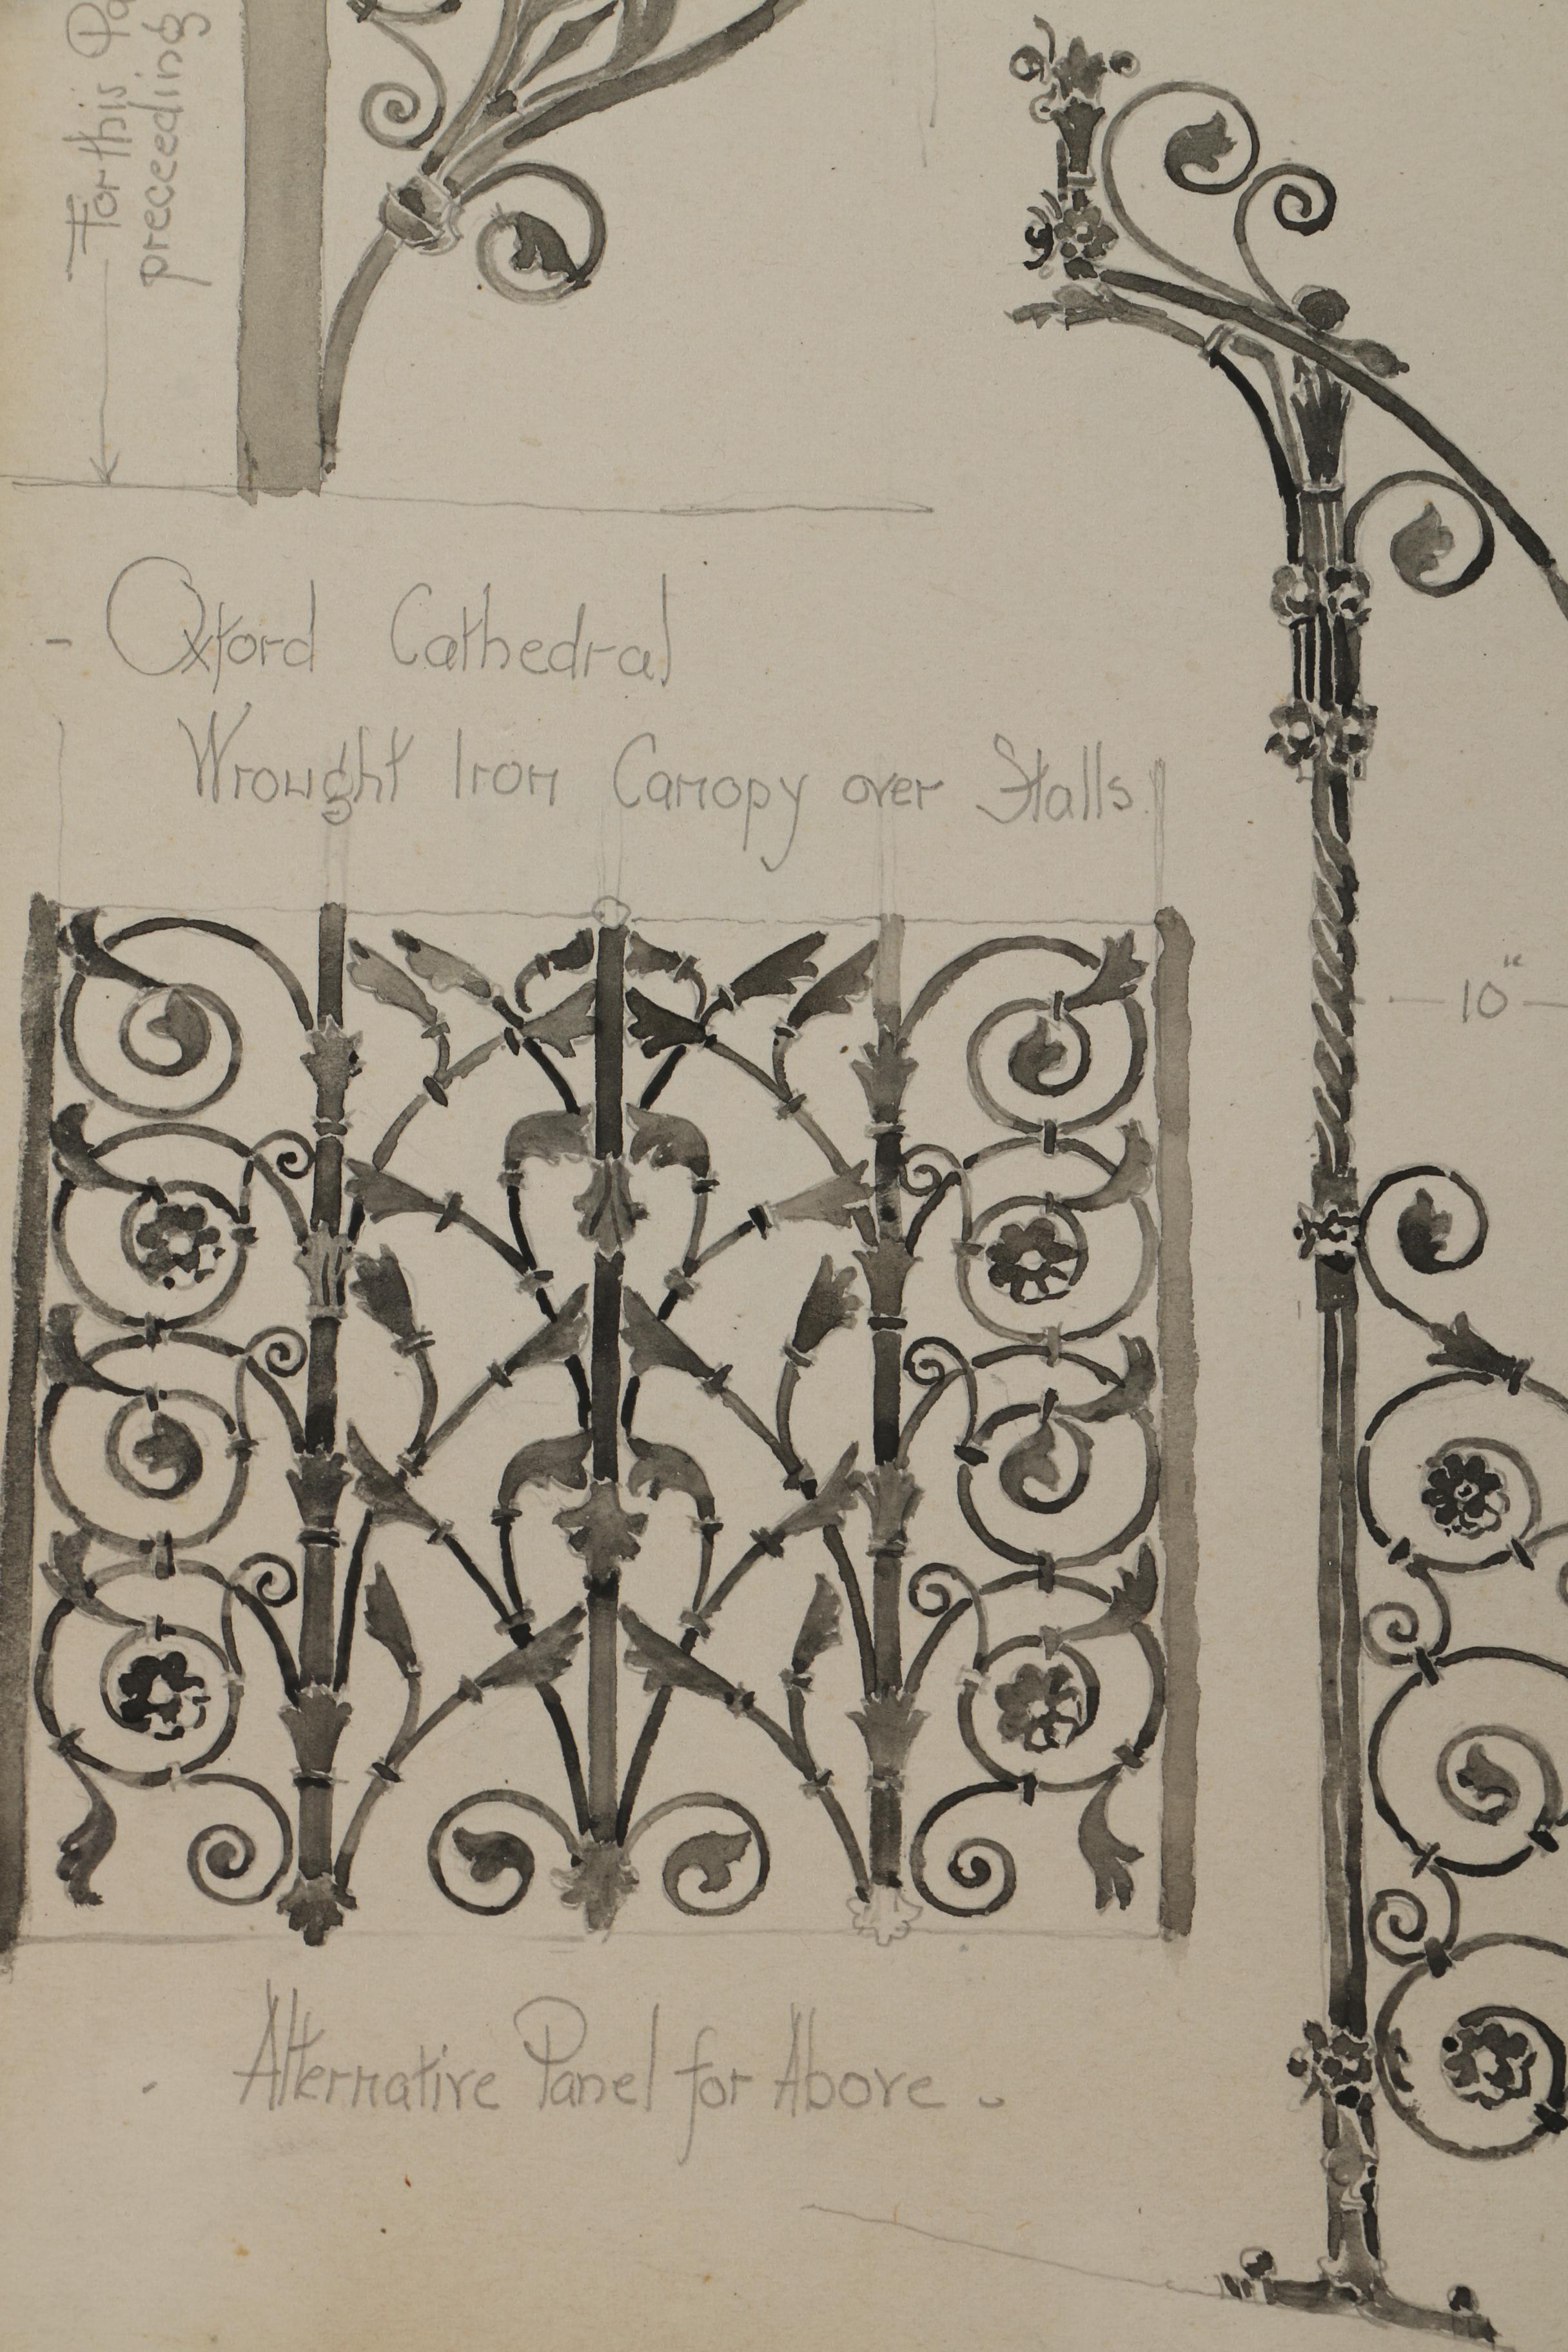 For this
preceeding
- Oxford Cathedral
Wrought Iron Canopy over Stalls
10"
- Alternative Panel for Above -